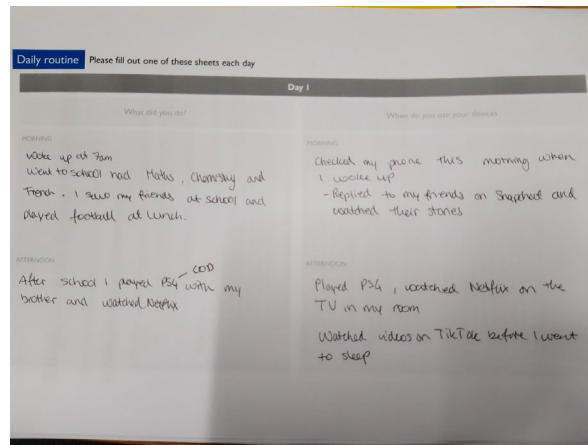 Daily routine Please fill out one of these sheets each day
Day 1
What did you do?
MORNING
woke up at 7am
Went to school had Maths, Chemistry and
French. I saw my friends at school and
played football at lunch.
AFTERNOON
COD
After school I played PS4 with my
brother and watched Netflix
When do you use your devices
MORNING
Checked my phone this morning when
I woke up
- Replied to my friends on Snapchat and
watched their stories
AFTERNOON
Played PS4, watched Netflix on the
TV in my room
Watched videos on TikTok before I went
to sleep